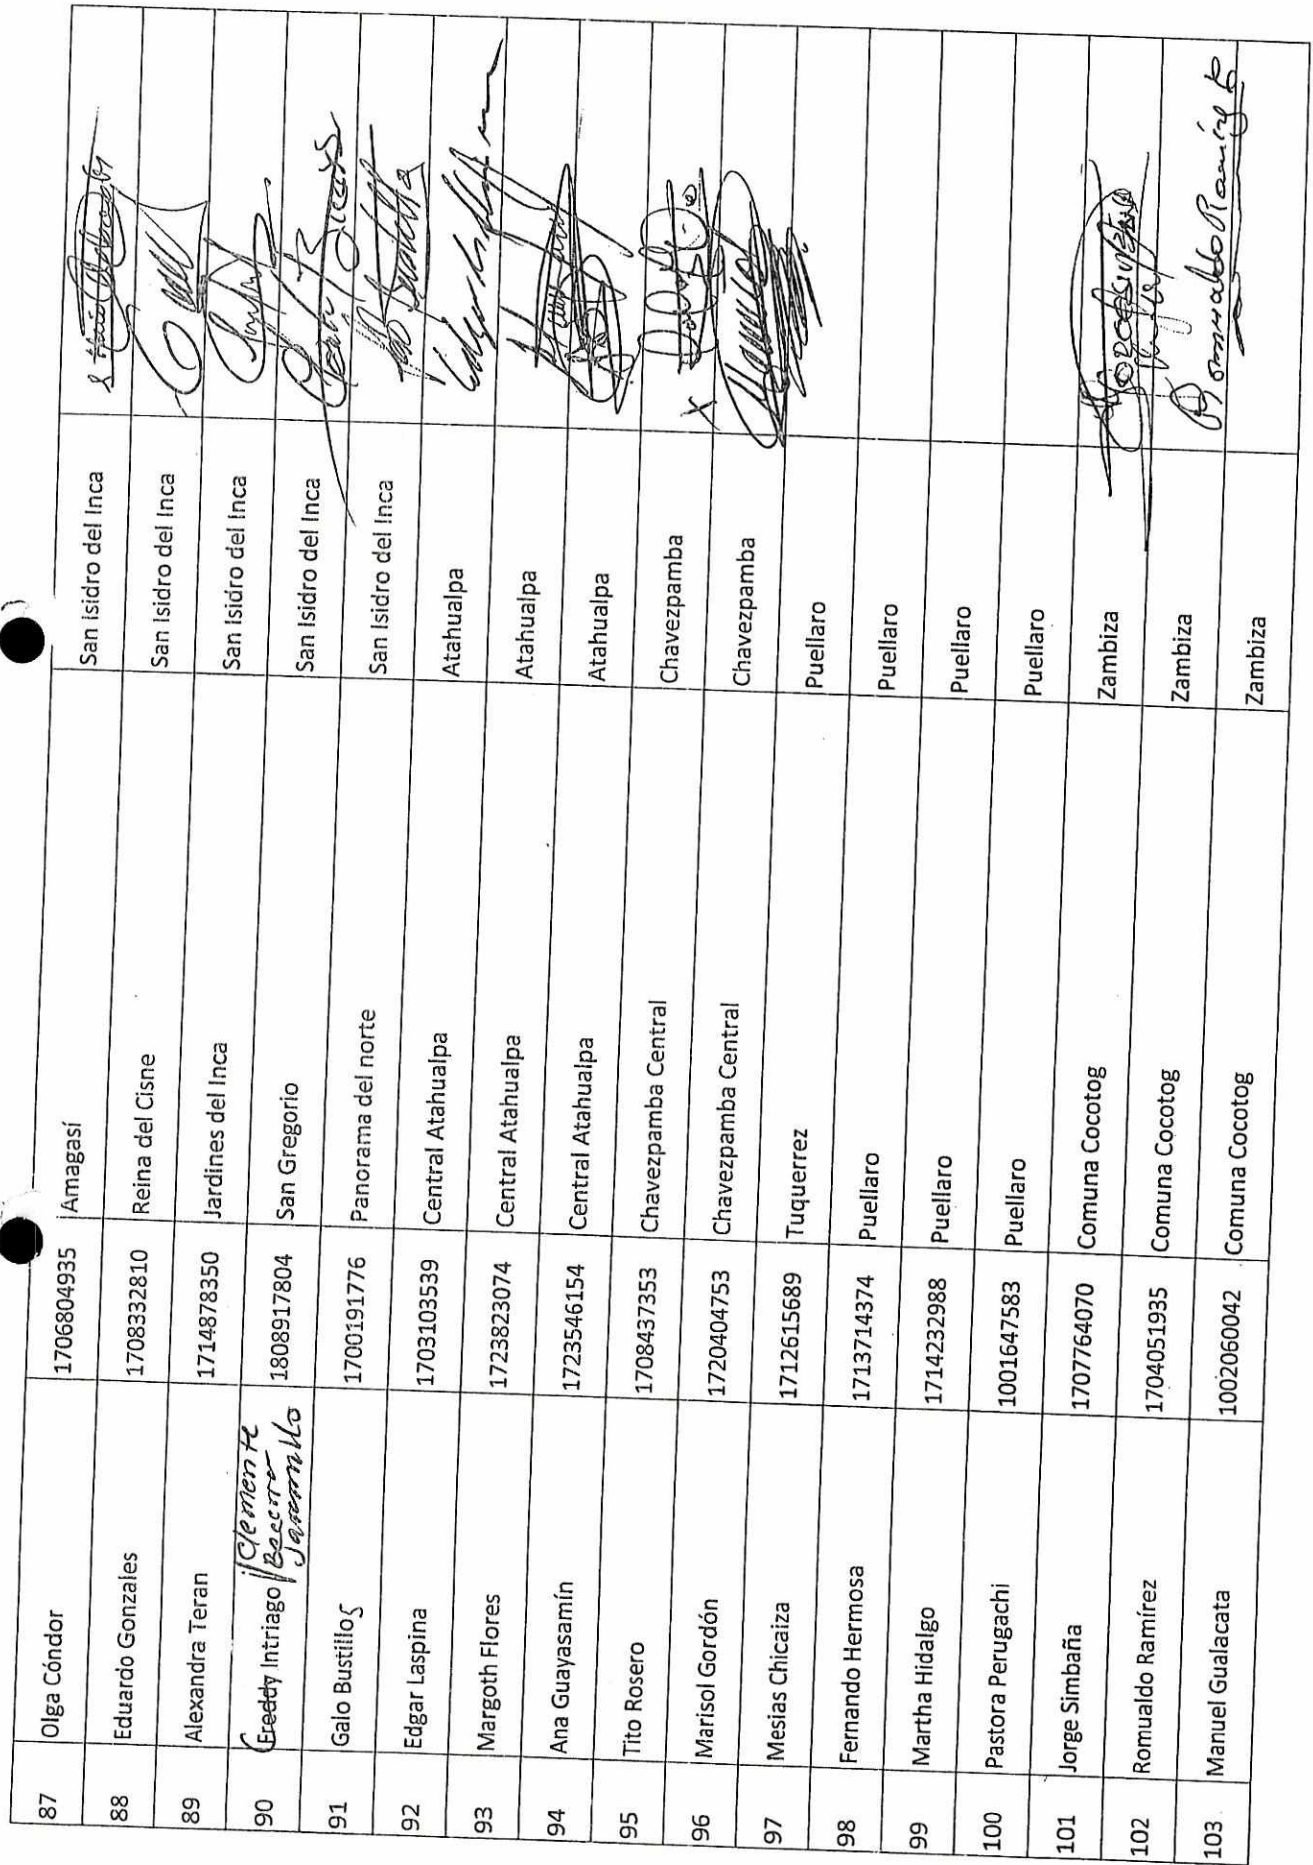 87 Olga Cóndor 1706804935 Amagasí San Isidro del Inca
88 Eduardo Gonzales 1708332810 Reina del Cisne San Isidro del Inca
89 Alexandra Teran 1714878350 Jardines del Inca San Isidro del Inca
90 Freddy Intriago Clemente Becerra Jaramillo 1808917804 San Gregorio San Isidro del Inca
91 Galo Bustillos 1700191776 Panorama del norte San Isidro del Inca
92 Edgar Laspina 1703103539 Central Atahualpa Atahualpa
93 Margoth Flores 1723823074 Central Atahualpa Atahualpa
94 Ana Guayasamín 1723546154 Central Atahualpa Atahualpa
95 Tito Rosero 1708437353 Chavezpamba Central Chavezpamba
96 Marisol Gordón 1720404753 Chavezpamba Central Chavezpamba X
97 Mesias Chicaiza 1712615689 Tuquerrez Puellaro
98 Fernando Hermosa 1713714374 Puellaro Puellaro
99 Martha Hidalgo 1714232988 Puellaro Puellaro
100 Pastora Perugachi 1001647583 Puellaro Puellaro
101 Jorge Simbaña 1707764070 Comuna Cocotog Zambiza
102 Romualdo Ramírez 1704051935 Comuna Cocotog Zambiza Romualdo Ramírez
103 Manuel Gualacata 1002060042 Comuna Cocotog Zambiza